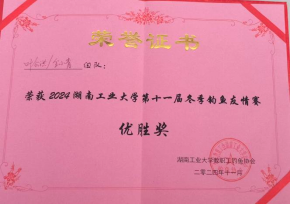 荣誉证书
团队:
荣获2024湖南工业大学第十一届冬季钓鱼友情赛
优胜奖
湖南工业大学教职工钓鱼协会
二零二四年十一月